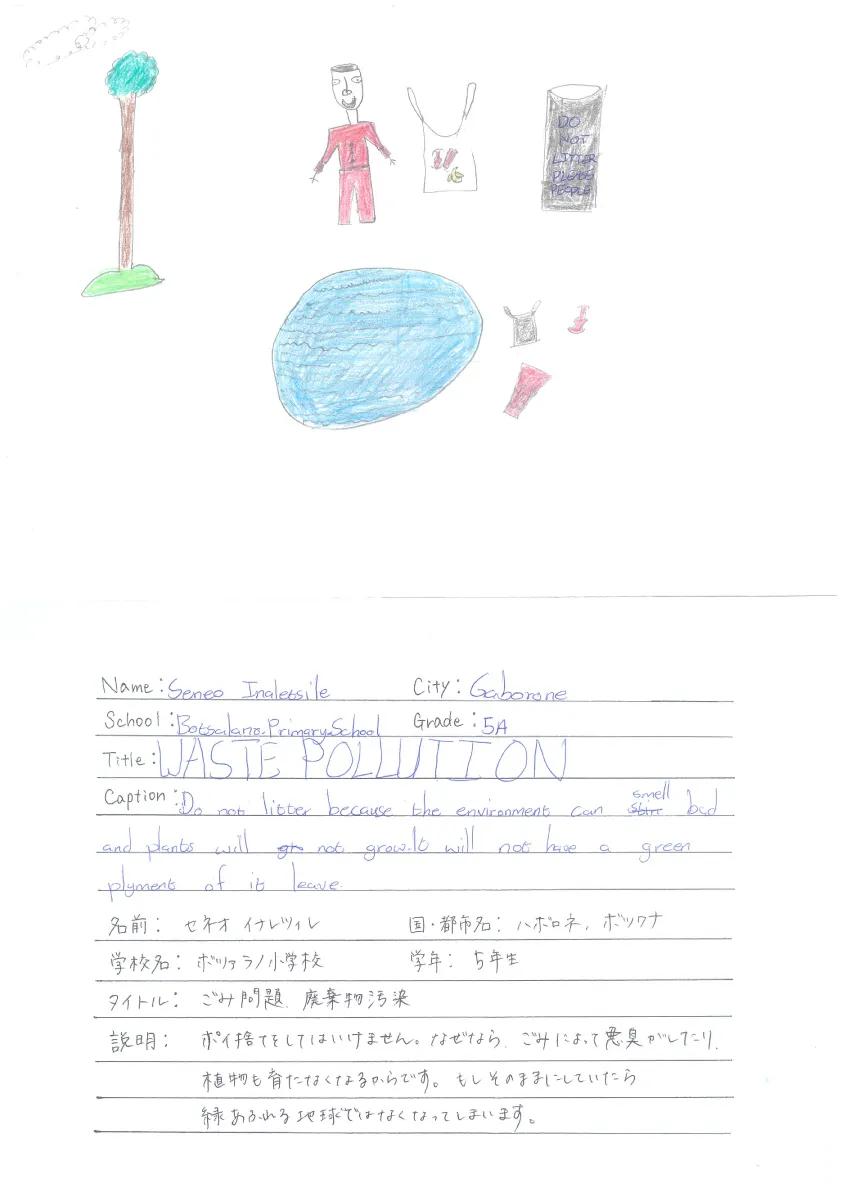 DO
NOT
LITTER
PLEASE
PEOPLE
Name: Seneo Inaletsile City: Gaborone
School: Botsalano Primary School Grade: 5A
Title: WASTE POLLUTION
Caption: Do not litter because the environment can smell bad
and plants will not grow. It will not have a green
plyment of it leave.
名前： セネオ イナレツィレ 国・都市名： ハボロネ, ボツワナ
学校名： ボツァラノ小学校 学年： 5年生
タイトル： ごみ問題、廃棄物汚染
説明： ポイ捨てをしてはいけません。なぜなら、ごみによって悪臭がしたり、
植物も育たなくなるからです。もしそのままにしていたら
緑あふれる地球ではなくなってしまいます。